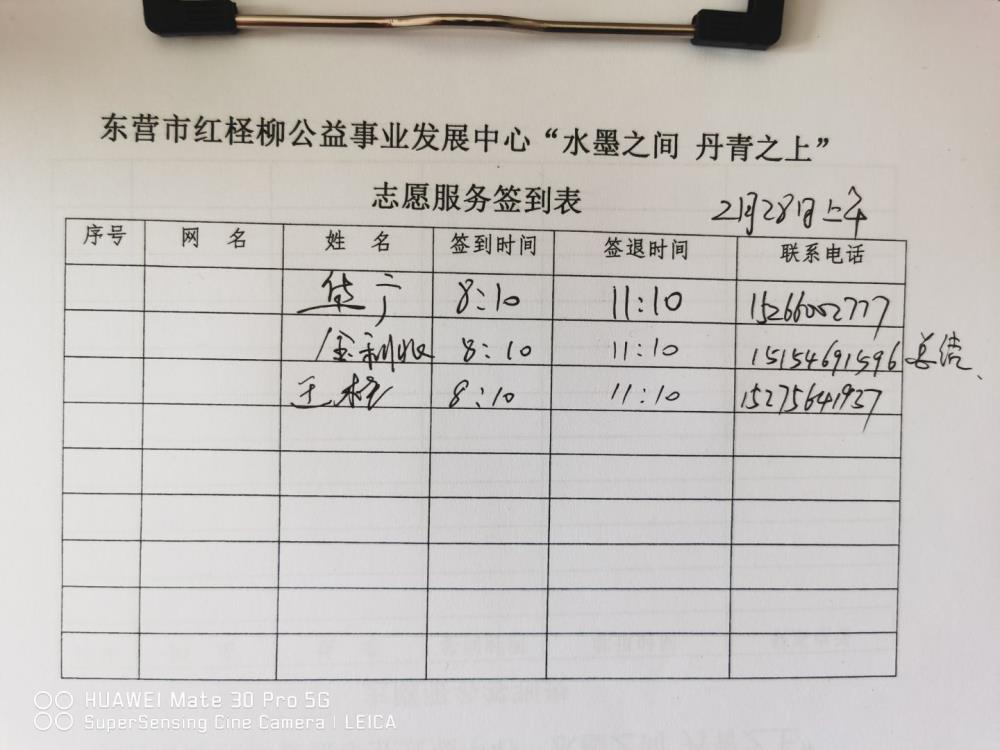 东营市红柽柳公益事业发展中心“水墨之间 丹青之上”
志愿服务签到表
2月28日上午
序号 网 名 姓 名 签到时间 签退时间 联系电话
8:10 11:10 15266002777
8:10 11:10 15154691596 总结、
王 8:10 11:10 15275641937
HUAWEI Mate 30 Pro 5G
SuperSensing Cine Camera | LEICA